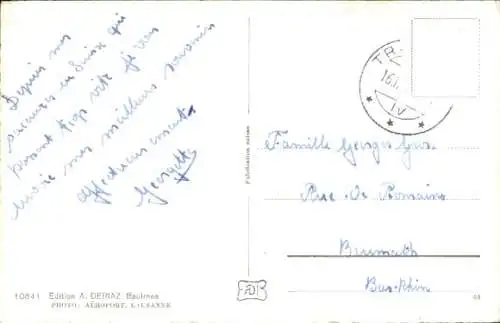 Depuis mes
vacances en Suisse qui
passent trop vite je vous
envoie mes meilleurs souvenirs
affectueusement
Georgette
Fabrication suisse
TR
16.
Famille Georges
Rue de Romains
Brumath
Bas-Rhin
10841 Edition A. DERIAZ, Baulmes
PHOTO: AÉROPORT, LAUSANNE
AD